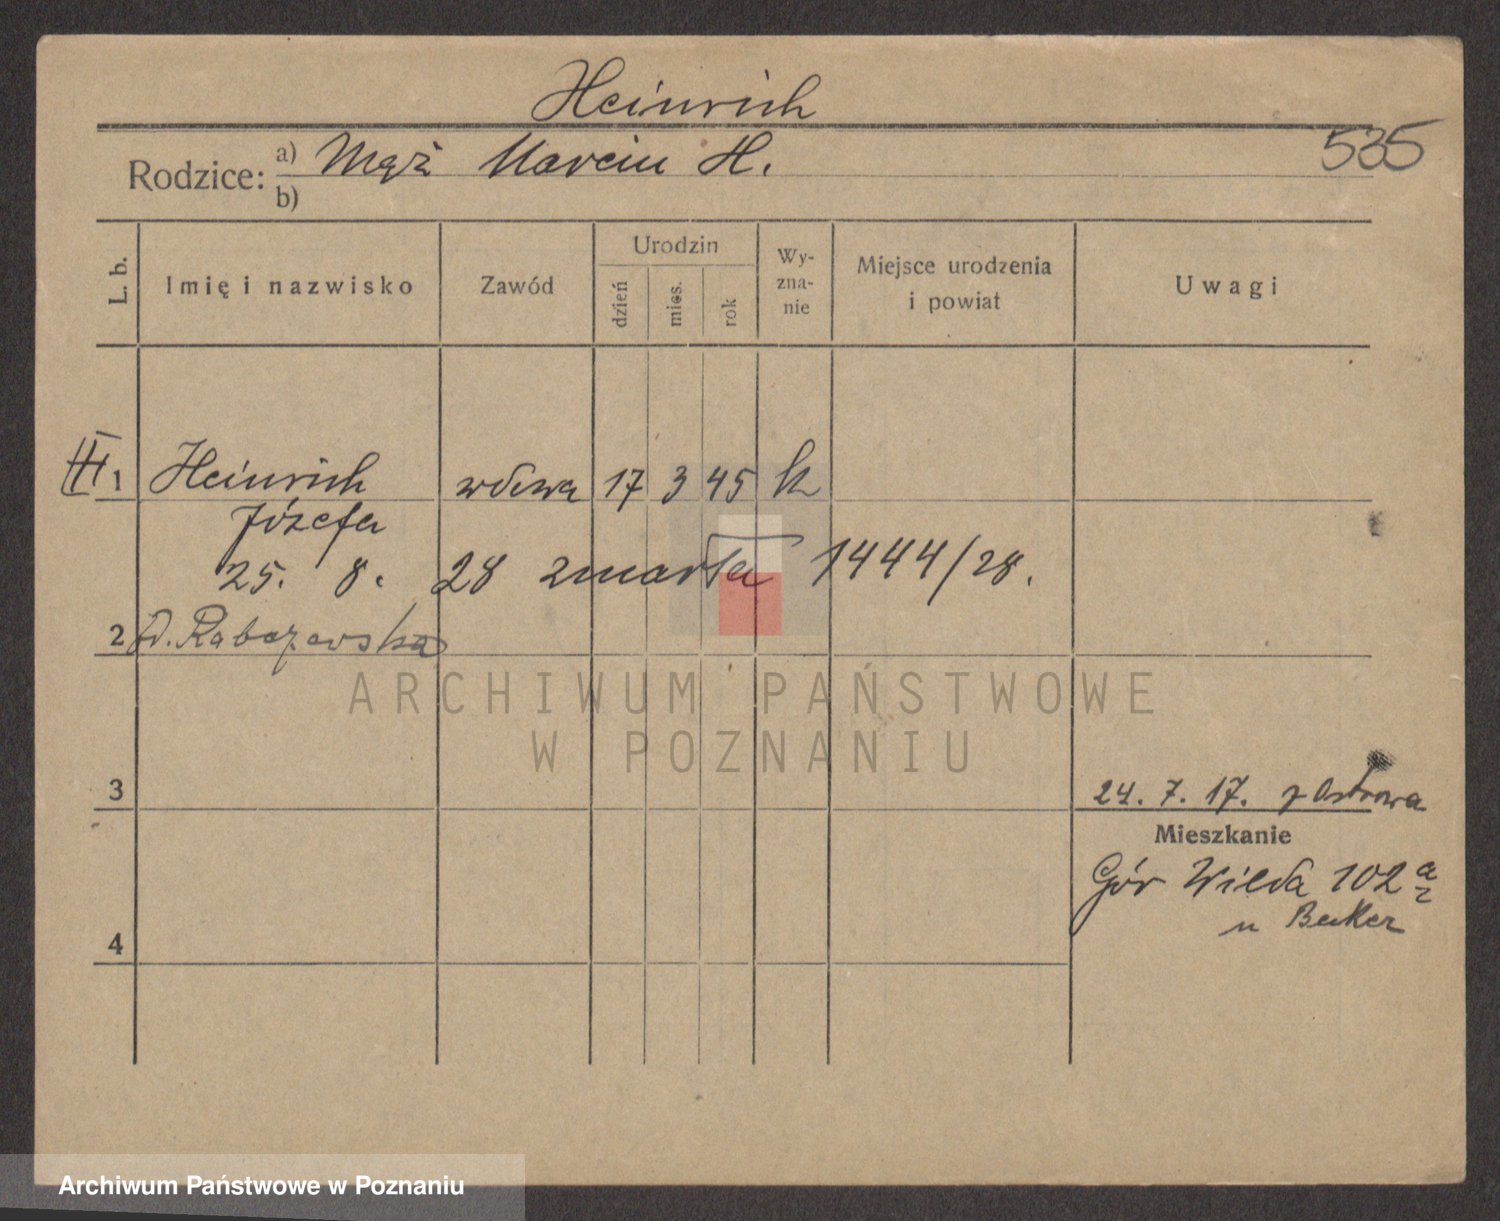 Heinrich
535
Rodzice: a) Mąż Marcin H.
b)
L. b.
Imię i nazwisko
Zawód
Urodzin
dzień
mies.
rok
Wy-
zna-
nie
Miejsce urodzenia
i powiat
Uwagi
1 Heinrich wdowa 17 3 45 k
Józefa
25. 8. 28 zmarła 1444/28.
2
ARCHIWUM PAŃSTWOWE
W POZNANIU
3
24. 7. 17. z Ostrowa
Mieszkanie
Gór Wilda 102 a
u Becker
4
Archiwum Państwowe w Poznaniu